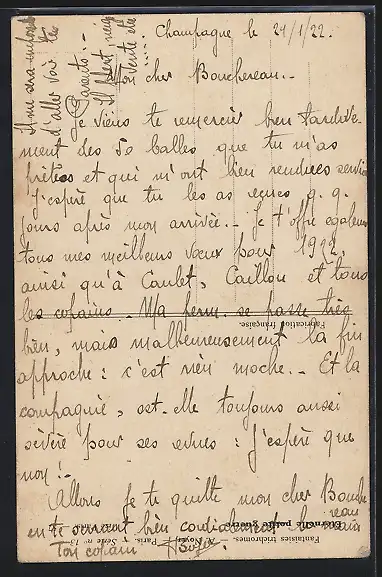 Champagne le 24/1/22.
Mon cher Bouchereau.-
Je viens te remercier bien tardive-
ment des 50 balles que tu m'as
prêtées et qui m'ont bien rendues service
J'espère que tu les as reçues q.q.
jours après mon arrivée.- Je t'offre également
tous mes meilleurs vœux pour 1922,
ainsi qu'à Caulet, Caillou et tous
les copains. Ma perm. se passe très
bien, mais malheureusement la fin
approche: c'est rien moche.- Et la
compagnie, est-elle toujours aussi
sévère pour ses
: J'espère que
non!-
Allons je te quitte mon cher Bouche
reau
en te serrant bien cordialement la main
Ton copain
d'aller voir tes
Parents:
Fabrication française.
Fantaisies trichromes.
A. Noyer
Paris.
Série n° 13